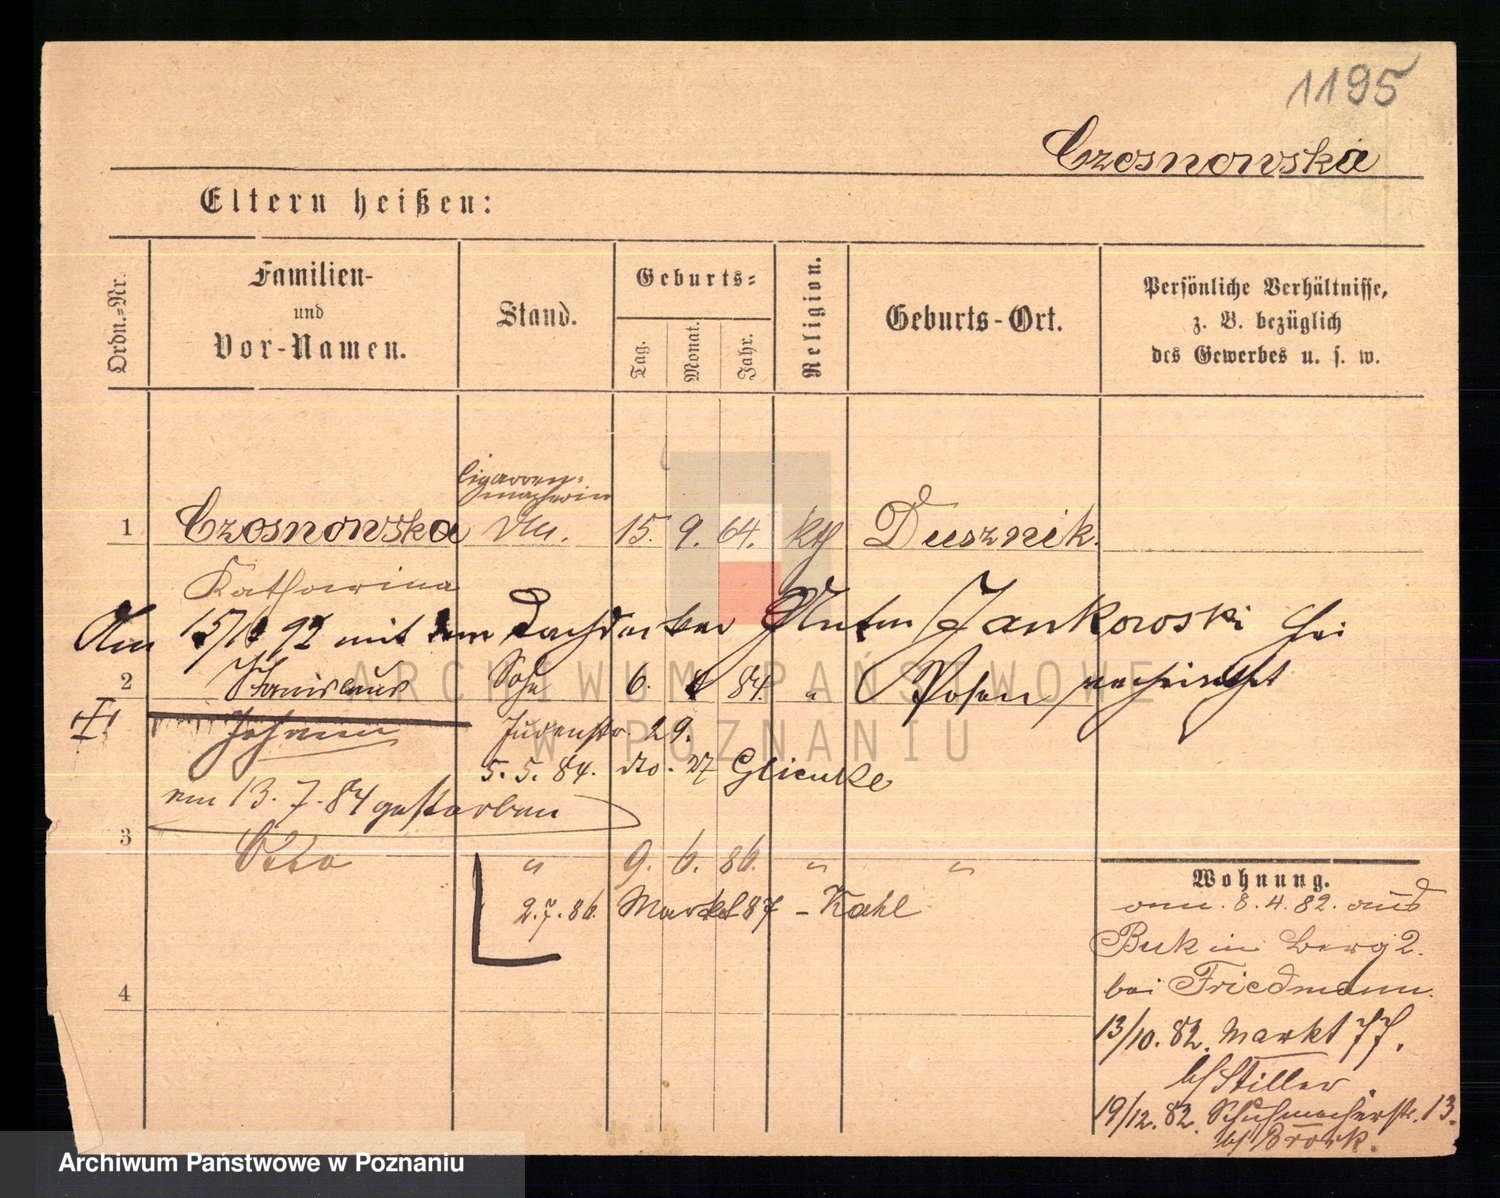 1195
Czosnowska
Eltern heißen:
Ordn.-Nr.
Familien-
und
Vor-Namen.
Stand.
Geburts-
Tag.
Monat.
Jahr.
Religion.
Geburts-Ort.
Persönliche Verhältnisse,
z. B. bezüglich
des Gewerbes u. s. w.
Cigarren-
macherin
1 Czosnowska 15. 9. 64. kth Dusznik.
Katharina
Am 92 mit dem Dachdecker Anton Jankowski hei
2 Stanislaus Sohn 6. 84. " Posen verheirathet
Johann Judenstr. 29.
5. 5. 84. dto. 27
am 13. 7. 84 gestorben
3 Otto " 9. 6. 86. " "
2.7.86. Markt 87 - Kahl
4
Wohnung.
8.4.82. aus
Buk in Berg 2.
bei Friedmann.
13/10. 82. Markt 77.
b/ Stiller.
19/12. 82. Schuhmacherstr. 13.
b/ Brork.
ARCHIWUM PAŃSTWOWE
W POZNANIU
Archiwum Państwowe w Poznaniu